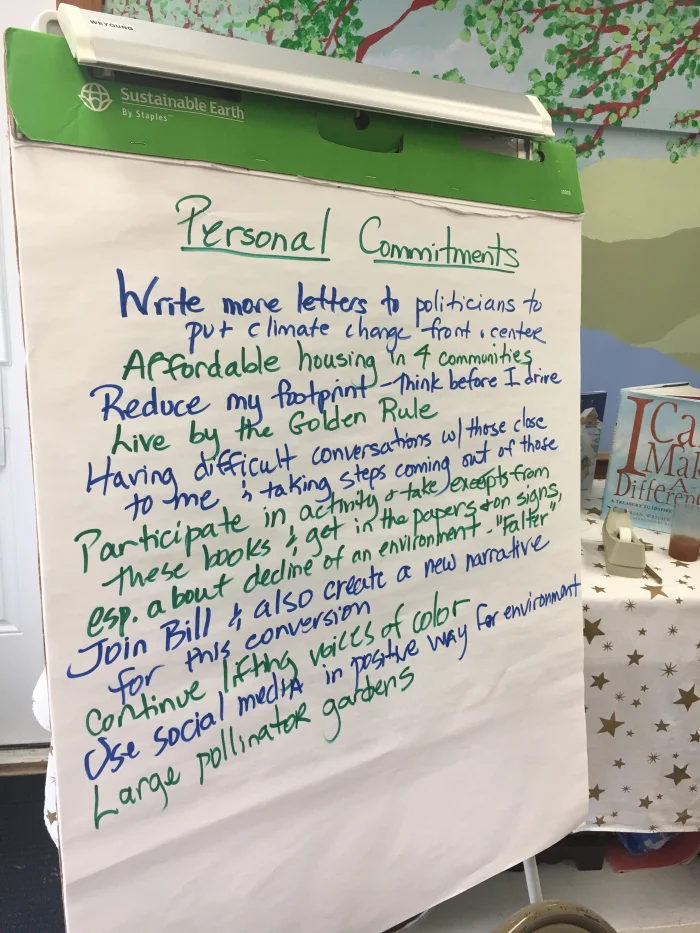 WEYOUNG
Sustainable Earth
By Staples™
Personal Commitments
Write more letters to politicians to
put climate change front & center
Affordable housing in 4 communities
Reduce my footprint - Think before I drive
Live by the Golden Rule
Having difficult conversations w/ those close
to me & taking steps coming out of those
Participate in activity & take excepts from
these books & get in the papers & on signs,
esp. about decline of an environment - "Falter",
Join Bill & also create a new narrative
for this conversion
Continue lifting voices of color
Use social media in positive way for environment
Large pollinator gardens
I Ca
Mak
A
Differen